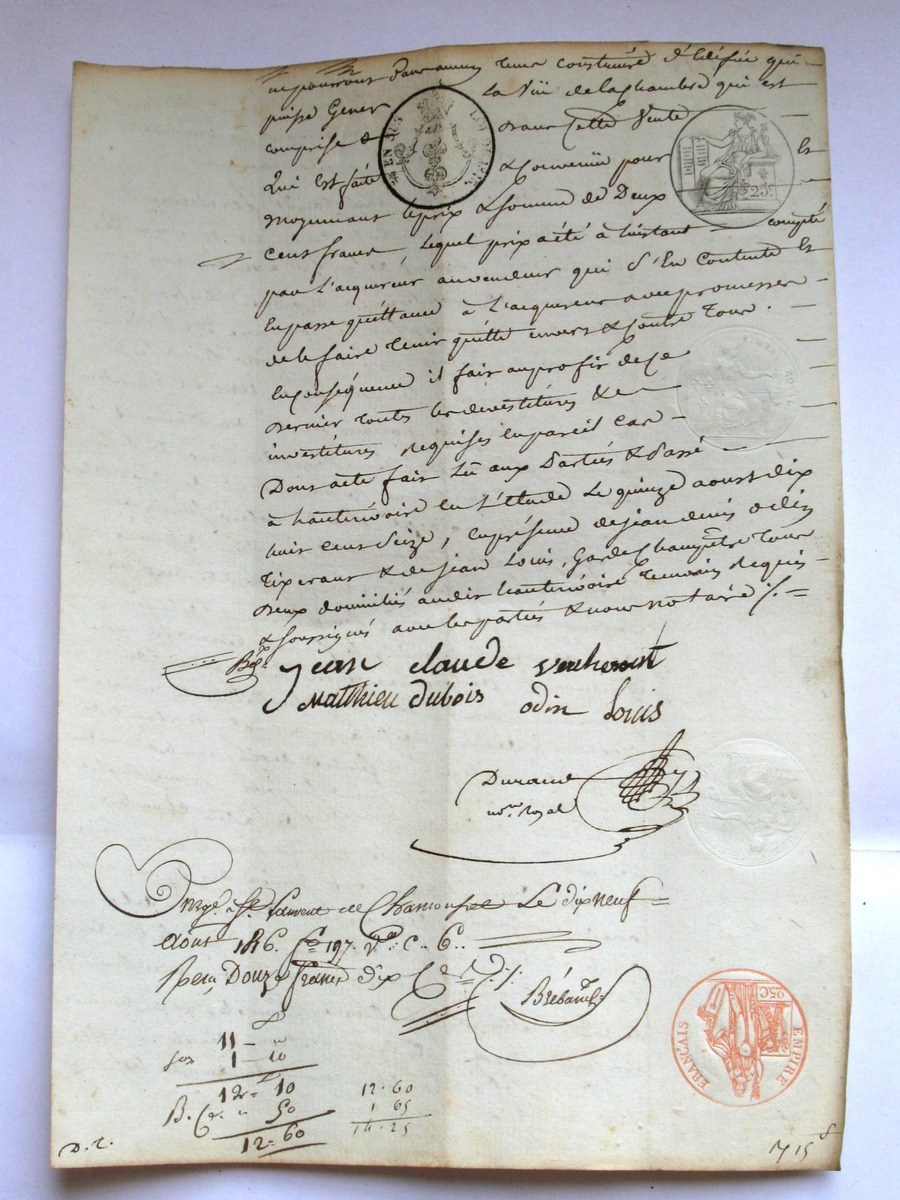 ne pourront leur construire d'Edifice qui
puisse Gener la Vüe de la Chambre qui est
comprise dans cette Vente
EN SUS
25c
Qui est faite & Convenüe pour Et
moyennant le prix & Somme de Deux
Cent francs, lequel prix a été à l'instant compté
par L'acquéreur au vendeur qui S'En Contente Et
En passe quittance à L'acquereur avec promesse
de le faire tenir quitte envers & Contre Tous.
En conséquence il fait au profit de Ce
dernier toutes les devestitures &
investitures requises en pareil Cas
ROYAL
Dont acte fait Lû aux Parties & Passé
à hauterivoire en L'étude Le quinze aoust dix
huit cent Seize, en présence de jean denis odin
Tixerant & de jean Louis, Garde Champêtre Tous
deux domiciliés au dit hauterivoire temoins Requis
& Soussignés avec les parties & nous notaire
jean claude
Matthieu dubois odin Louis
Durand
no.re Royal
Enregé à St. Laurent de Chamousset Le dix neuf
Août 1816. fo 197. Vo. C. 6.
Reçu Douze francs dix
11 -
1 - 10
12 = 10
B. 50
12 = 60
12 . 60
1 65
14 . 25
EMPIRE
FRANÇAIS
25C
D. T.
715